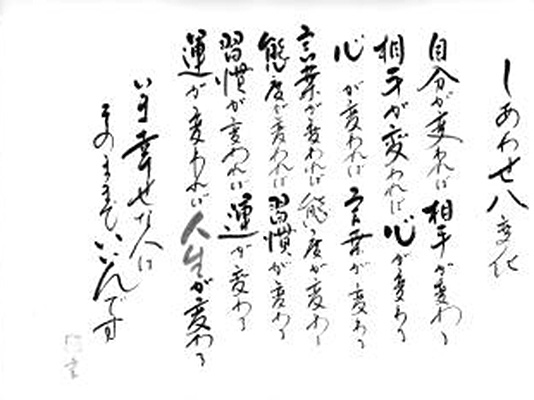 しあわせ八変化
自分が変われば相手が変わる
相手が変われば心が変わる
心が変われば言葉が変わる
言葉が変われば態度が変わる
態度が変われば習慣が変わる
習慣が変われば運が変わる
運が変われば人生が変わる
いま幸せな人は
そのままでいいんです